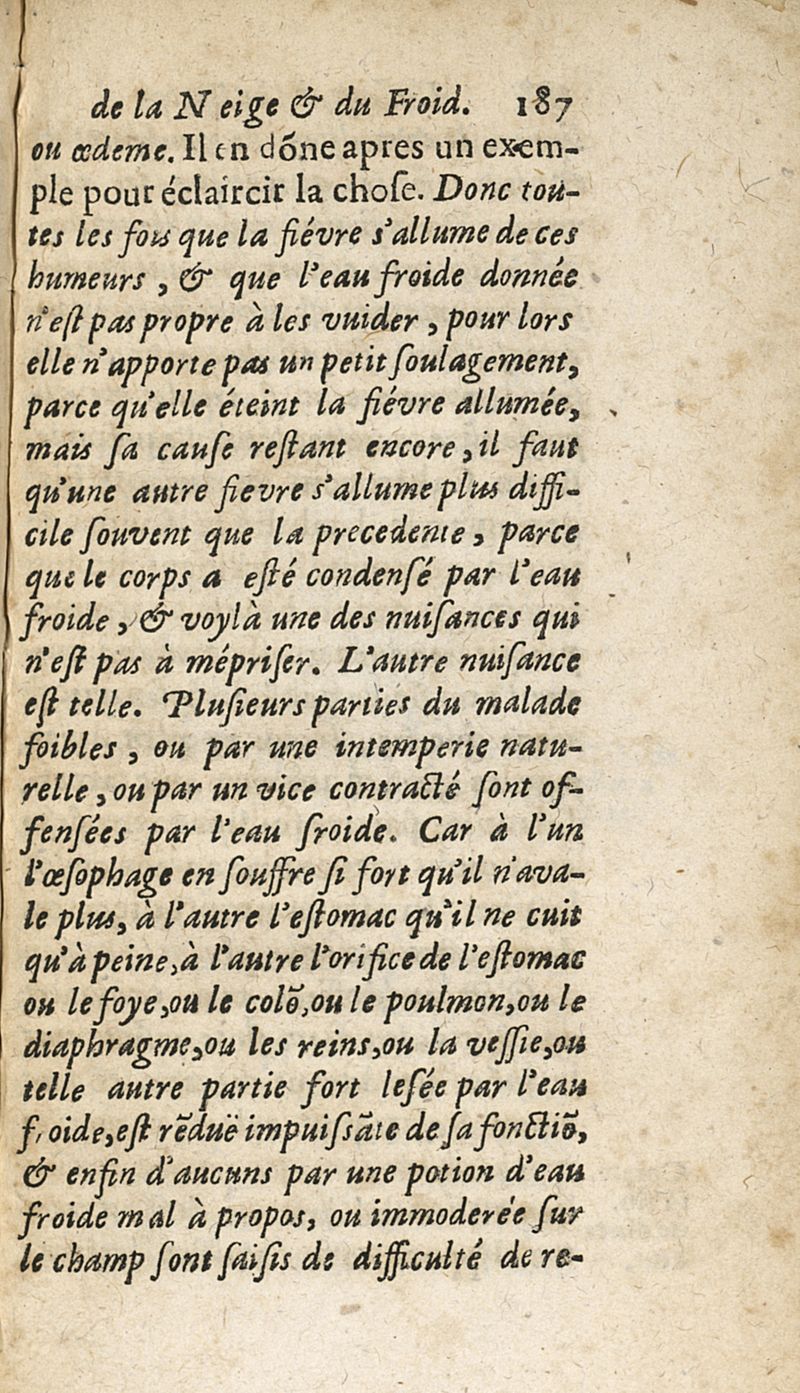 de la Neige & du Froid. 187
ou œdeme. Il en dõne apres un exem-
ple pour éclaircir la choſe. Donc tou-
tes les fois que la fiévre s'allume de ces
humeurs, & que l'eau froide donnée
n'eſt pas propre à les vuider, pour lors
elle n'apporte pas un petit ſoulagement,
parce qu'elle éteint la fiévre allumée,
mais ſa cauſe reſtant encore, il faut
qu'une autre fievre s'allume plus diffi-
cile ſouvent que la precedente, parce
que le corps a eſté condenſé par l'eau
froide, & voylà une des nuiſances qui
n'eſt pas à mépriſer. L'autre nuiſance
eſt telle. Pluſieurs parties du malade
foibles, ou par une intemperie natu-
relle, ou par un vice contracté ſont of-
fenſées par l'eau froide. Car à l'un
l'œſophage en ſouffre ſi fort qu'il n'ava-
le plus, à l'autre l'eſtomac qu'il ne cuit
qu'à peine, à l'autre l'orifice de l'eſtomac
ou le foye, ou le colõ, ou le poulmon, ou le
diaphragme, ou les reins, ou la veſſie, ou
telle autre partie fort leſée par l'eau
froide, eſt rẽduë impuiſsãte de ſa fonctiõ,
& enfin d'aucuns par une potion d'eau
froide mal à propos, ou immoderée ſur
le champ ſont ſaiſis de difficulté de re-